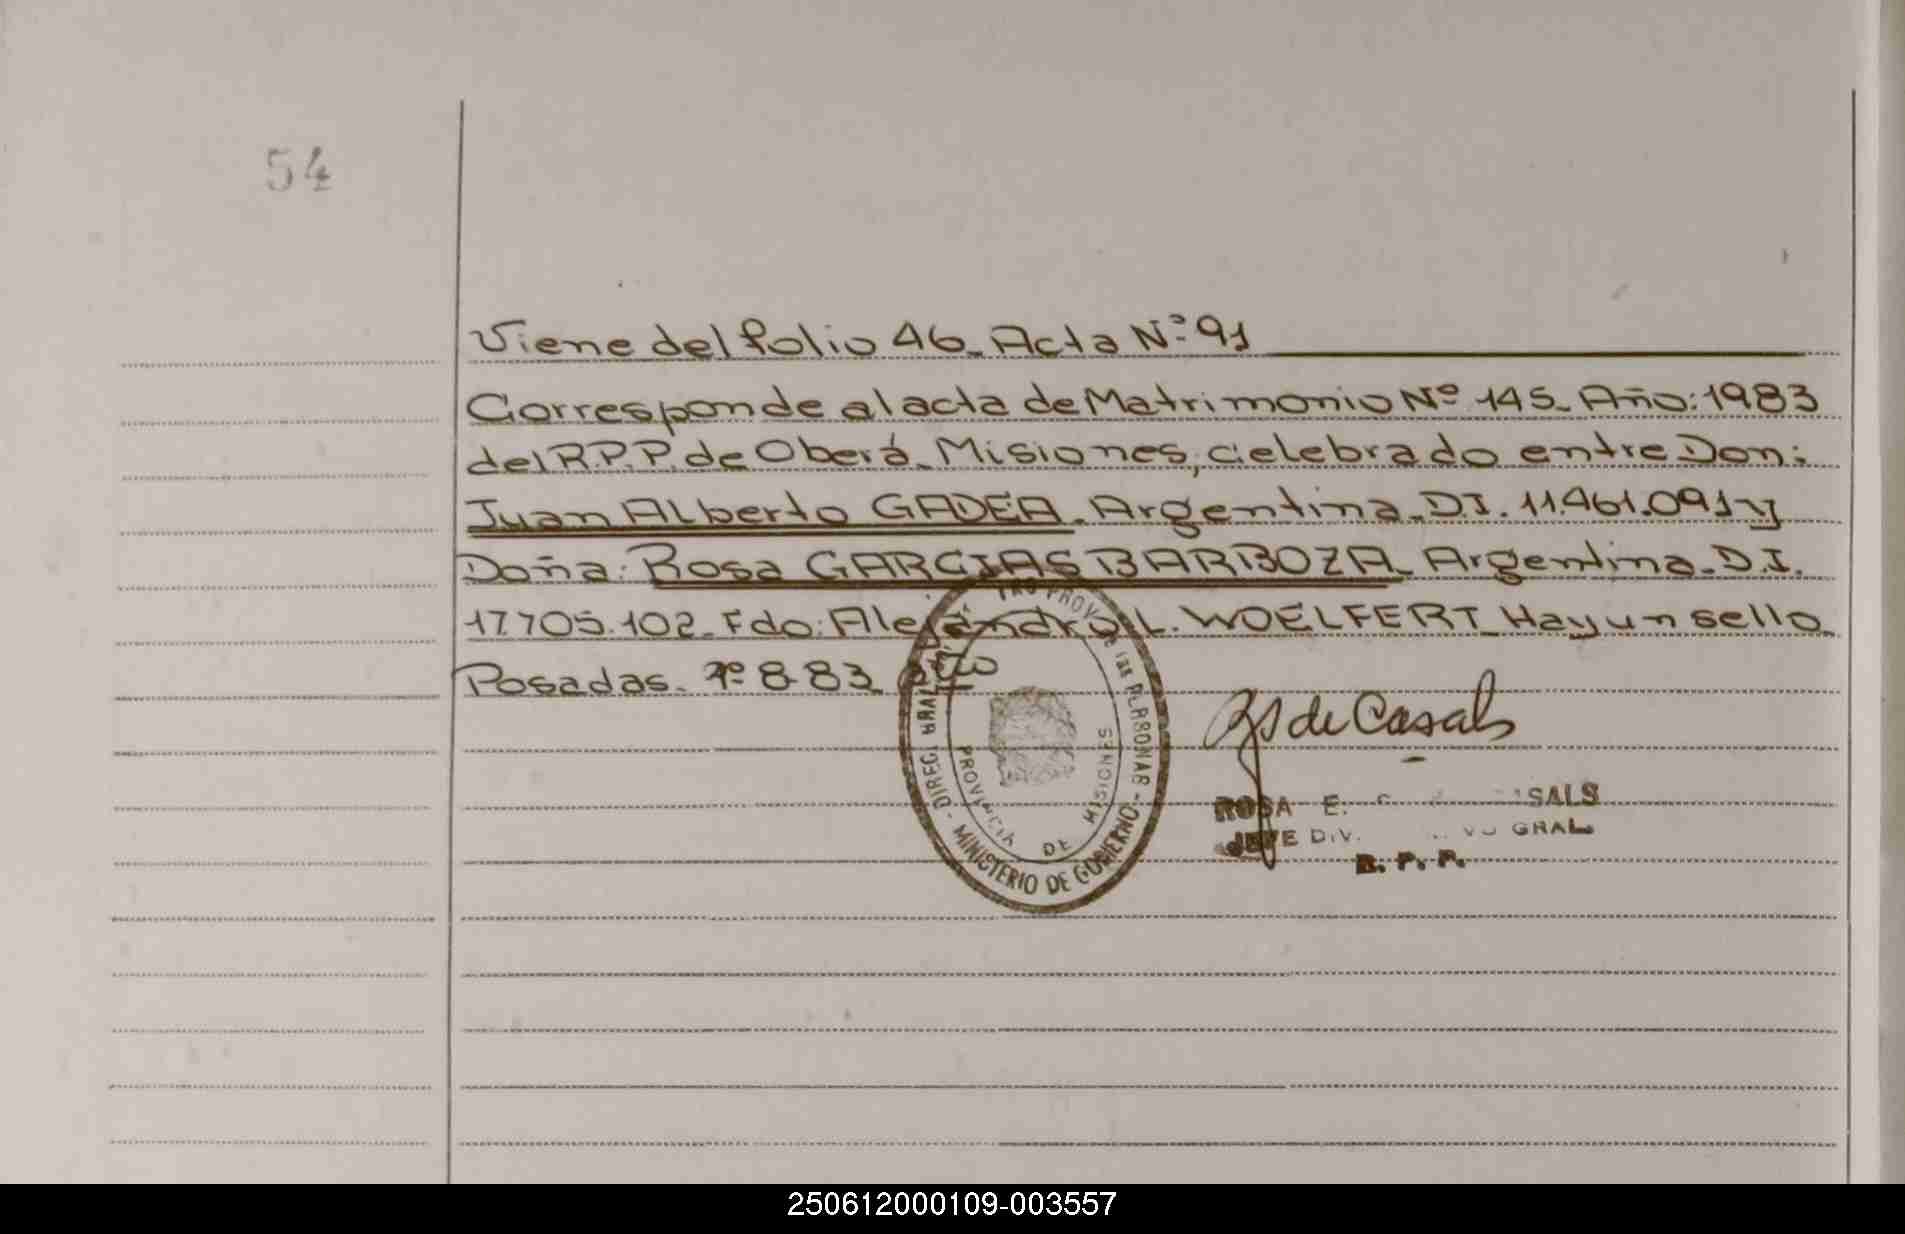 54
Viene del folio 46. Acta Nº 91
Corresponde al acta de Matrimonio Nº 145. Año: 1983
del R.P.P. de Oberá. Misiones, celebrado entre Don:
Juan Alberto GADEA. Argentina. D.I. 11.461.091 y
Doña: Rosa GARCIAS BARBOZA. Argentina. D.I.
17705.102. Fdo: Alejandro L. WOELFERT. Hay un sello.
Posadas. 1º-8-83.
de Casals
ROSA E. SALS
JEFE DIV. GRAL
R. P. P.
DIREC. GRAL PROV. de las PERSONAS
MINISTERIO DE GOBIERNO
PROVINCIA DE MISIONES
250612000109-003557